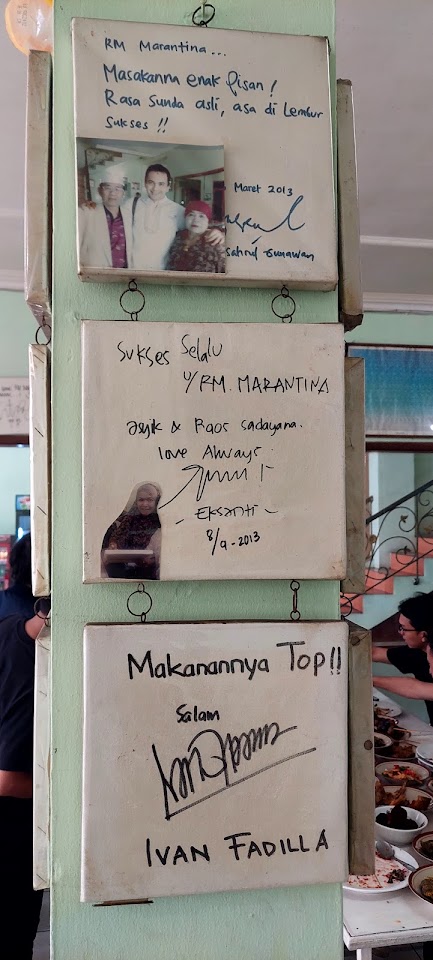 RM Marantina...
Masakanna enak pisan!
Rasa Sunda asli, asa di Lembur
Sukses !!
Maret 2013
Sahrul Gunawan
Sukses Selalu
u/ RM. MARANTINA
Asyik & Raos sadayana.
love Always
- Eksanti -
8/9 - 2013
Makanannya Top!!
Salam
IVAN FADILLA